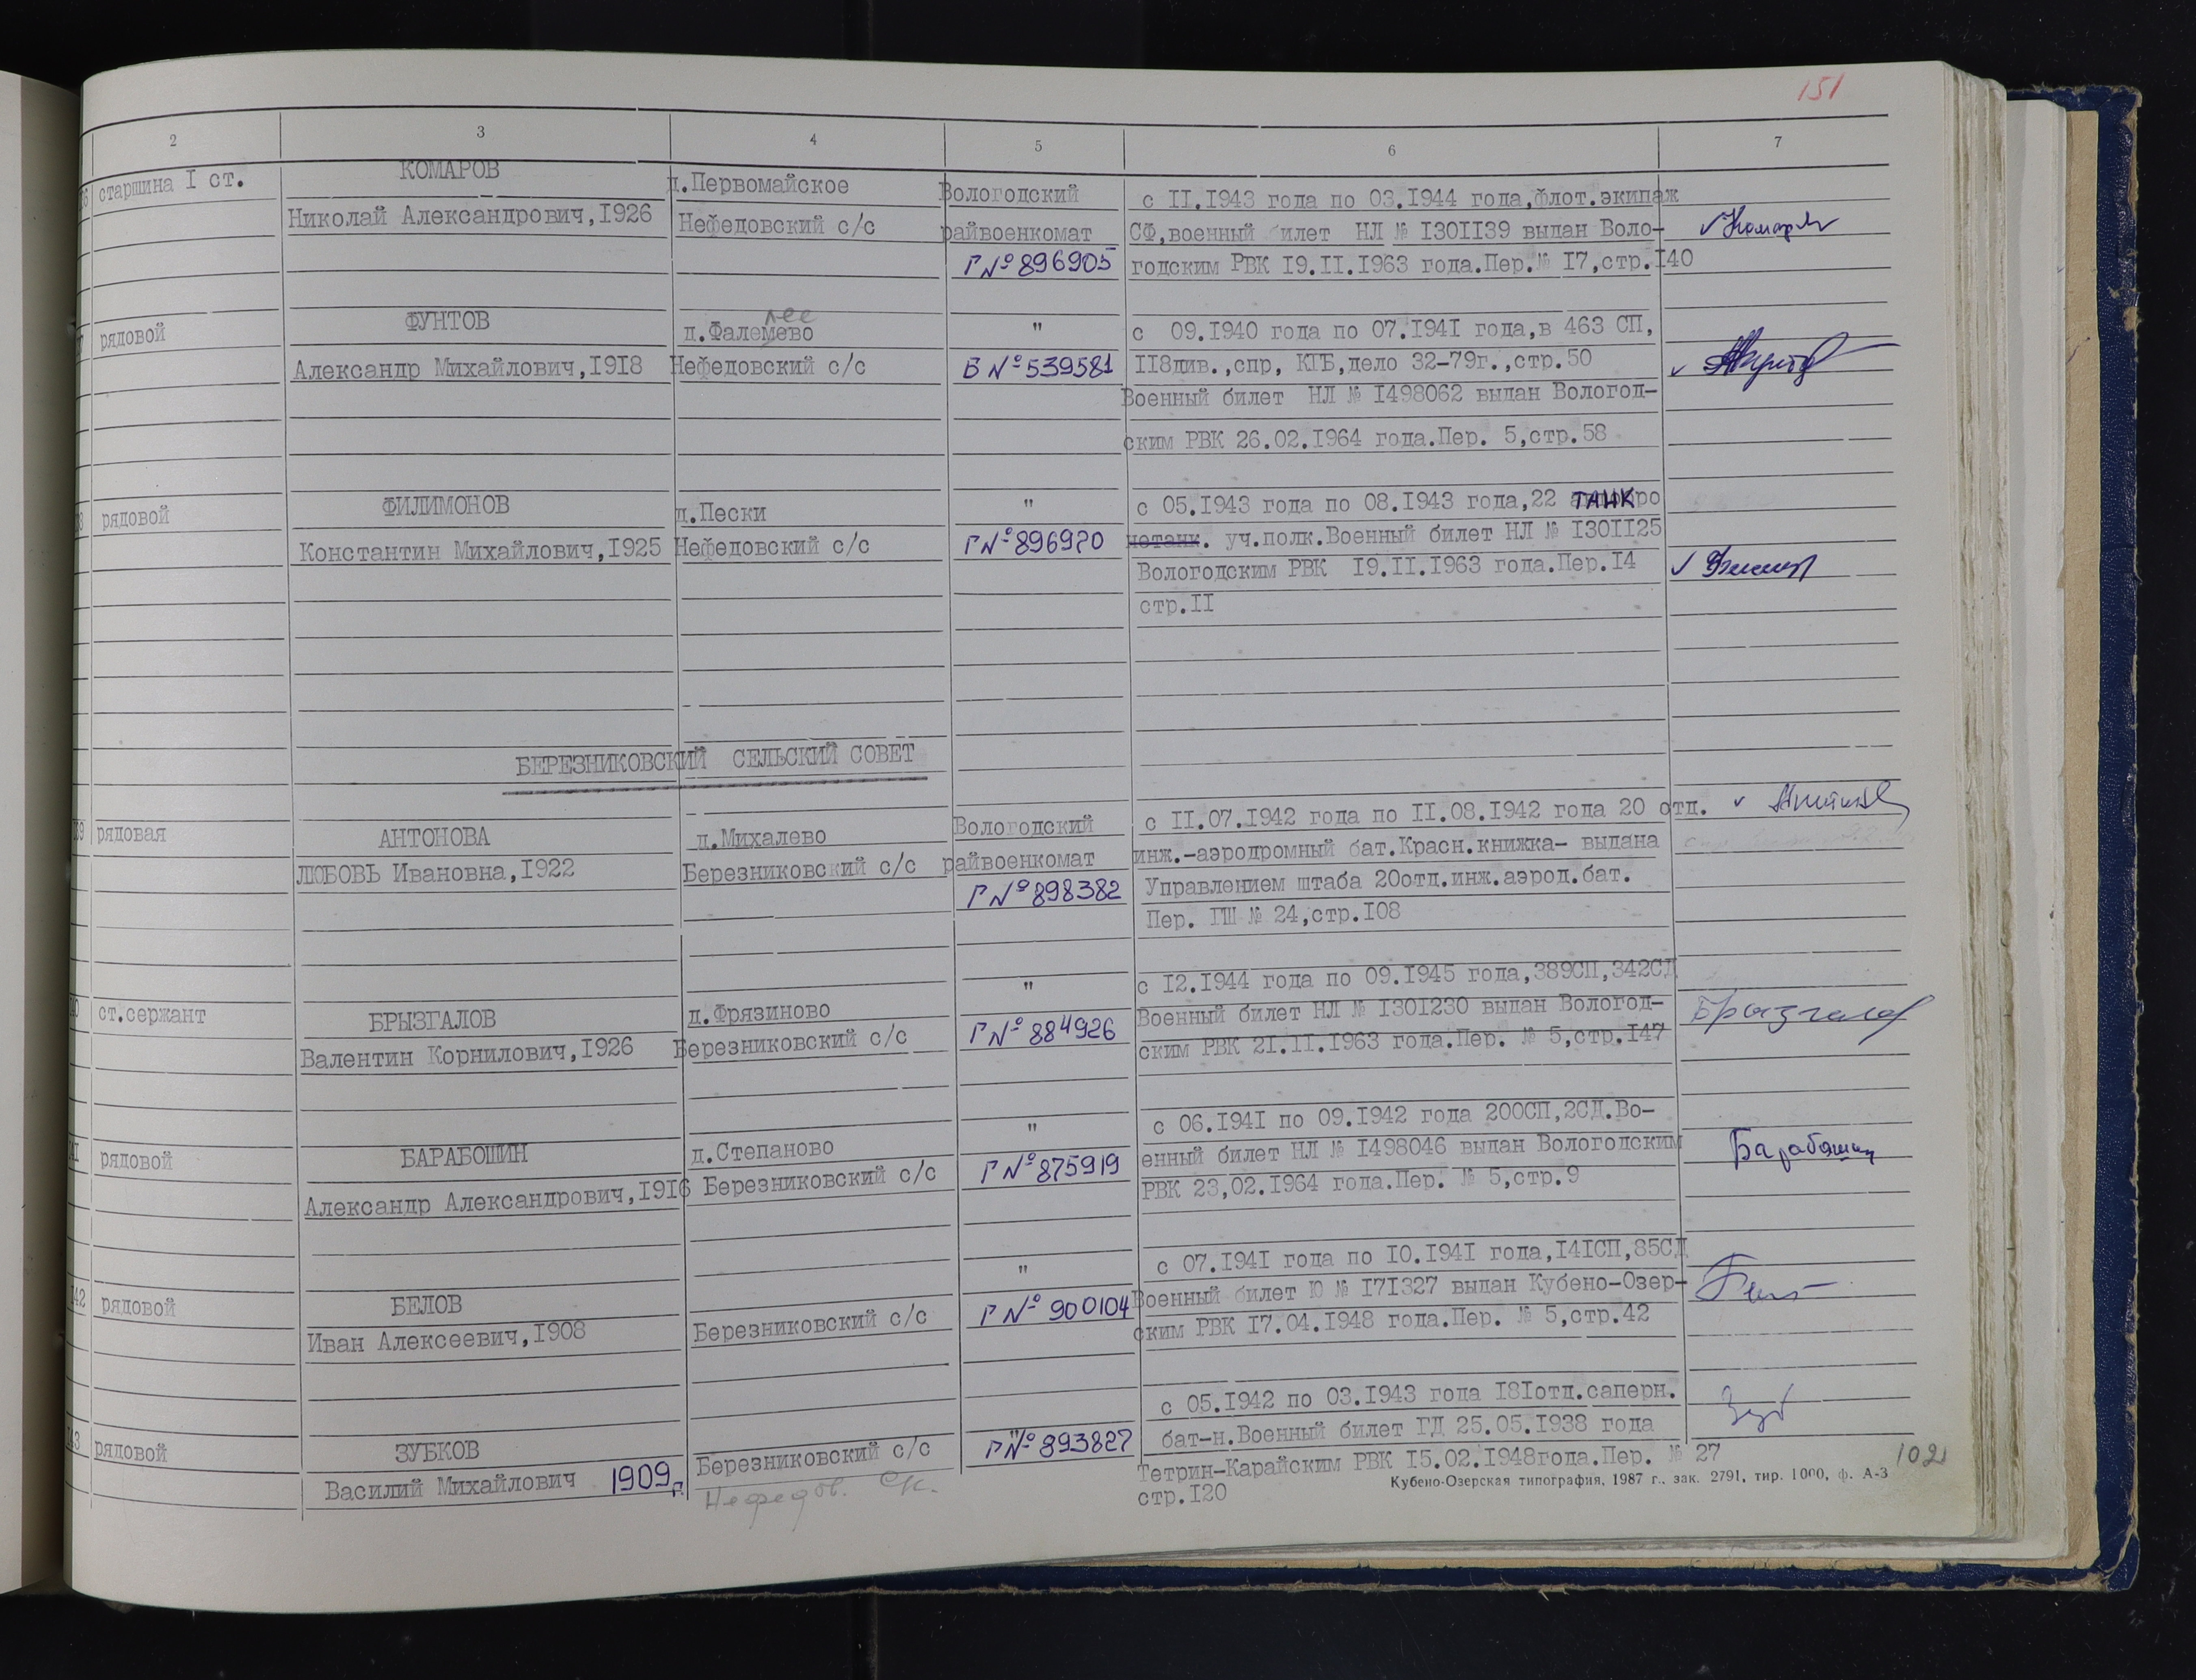 151
2 3 4 5 6 7
старшина I ст. КОМАРОВ д.Первомайское Вологодский с II.I943 года по 03.I944 года,флот.экипаж
Николай Александрович,I926 Нефедовский с/с райвоенкомат СФ,военный билет НЛ № I30II39 выдан Воло-
Г № 896905 годским РВК I9.II.I963 года.Пер.№ I7,стр.I40
рядовой ФУНТОВ д.Фалемево " с 09.I940 года по 07.I94I года,в 463 СП,
Александр Михайлович,I9I8 Нефедовский с/с Б № 539581 II8див.,спр, КГБ,дело 32-79г.,стр.50
Военный билет НЛ № I498062 выдан Вологод-
ским РВК 26.02.I964 года.Пер. 5,стр.58
рядовой ФИЛИМОНОВ д.Пески " с 05.I943 года по 08.I943 года,22 ТАНК
Константин Михайлович,I925 Нефедовский с/с Г № 896920 уч.полк.Военный билет НЛ № I30II25
Вологодским РВК I9.II.I963 года.Пер.I4
стр.II
БЕРЕЗНИКОВСКИЙ СЕЛЬСКИЙ СОВЕТ
рядовая АНТОНОВА д.Михалево Вологодский с II.07.I942 года по II.08.I942 года 20 отд.
ЛЮБОВЬ Ивановна,I922 Березниковский с/с райвоенкомат инж.-аэродромный бат.Красн.книжка- выдана
Г № 898382 Управлением штаба 20отд.инж.аэрод.бат.
Пер. ГШ № 24,стр.I08
ст.сержант БРЫЗГАЛОВ д.Фрязиново " с I2.I944 года по 09.I945 года,389СП,342СД
Валентин Корнилович,I926 Березниковский с/с Г № 884926 Военный билет НЛ № I30I230 выдан Вологод- Брызгалов
ским РВК 2I.II.I963 года.Пер. № 5,стр.I47
рядовой БАРАБОШИН д.Степаново " с 06.I94I по 09.I942 года 200СП,2СД.Во-
Александр Александрович,I9I6 Березниковский с/с Г № 875919 енный билет НЛ № I498046 выдан Вологодским Барабошин
РВК 23,02.I964 года.Пер. № 5,стр.9
142 рядовой БЕЛОВ " с 07.I94I года по I0.I94I года,I4IСП,85СД
Иван Алексеевич,I908 Березниковский с/с Г № 900104 Военный билет Ю № I7I327 выдан Кубено-Озер-
ским РВК I7.04.I948 года.Пер. № 5,стр.42
рядовой ЗУБКОВ Березниковский с/с " Г № 893827 с 05.I942 по 03.I943 года I8Iотд.саперн.
Василий Михайлович 1909 г. Нефедов. с/с. бат-н.Военный билет ГД 25.05.I938 года
Тетрин-Карайским РВК I5.02.I948года.Пер. № 27
стр.I20
Кубено-Озерская типография, 1987 г., зак. 2791, тир. 1000, ф. А-3
102